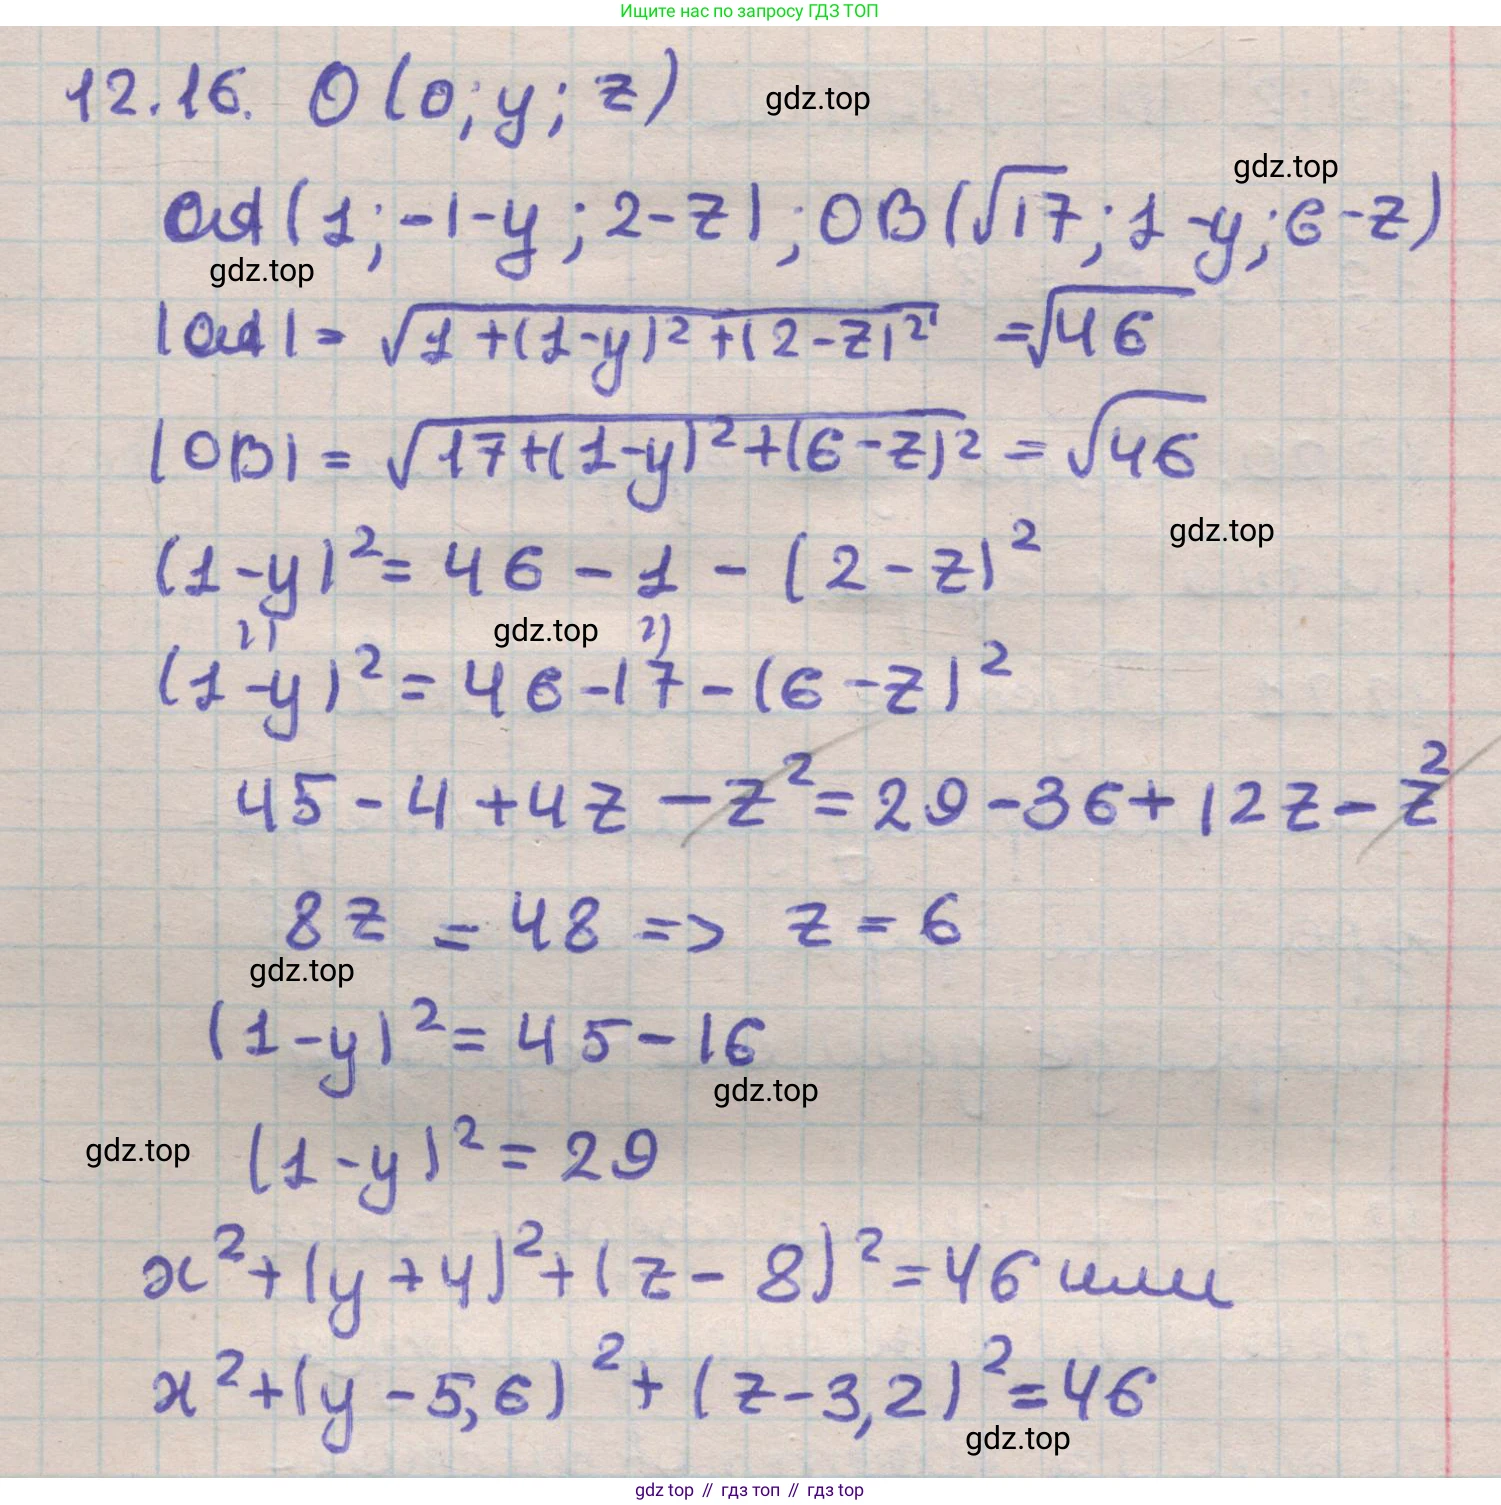 Ищите нас по запросу ГДЗ ТОП
12.16. O(0; y; z)
gdz.top
gdz.top
OA(1; -1-y; 2-z); OB(√17; 1-y; 6-z)
gdz.top
|OA| = √1+(1-y)²+(2-z)² = √46
|OB| = √17+(1-y)²+(6-z)² = √46
gdz.top
(1-y)² = 46 - 1 - (2-z)²
gdz.top
(1-y)² = 46-17-(6-z)²
45-4+4z-z² = 29-36+12z-z²
8z = 48 => z = 6
gdz.top
(1-y)² = 45-16
gdz.top
gdz.top
(1-y)² = 29
x²+(y+4)²+(z-8)² = 46 или
x²+(y-5,6)²+(z-3,2)² = 46
gdz.top
gdz top // гдз топ // гдз top